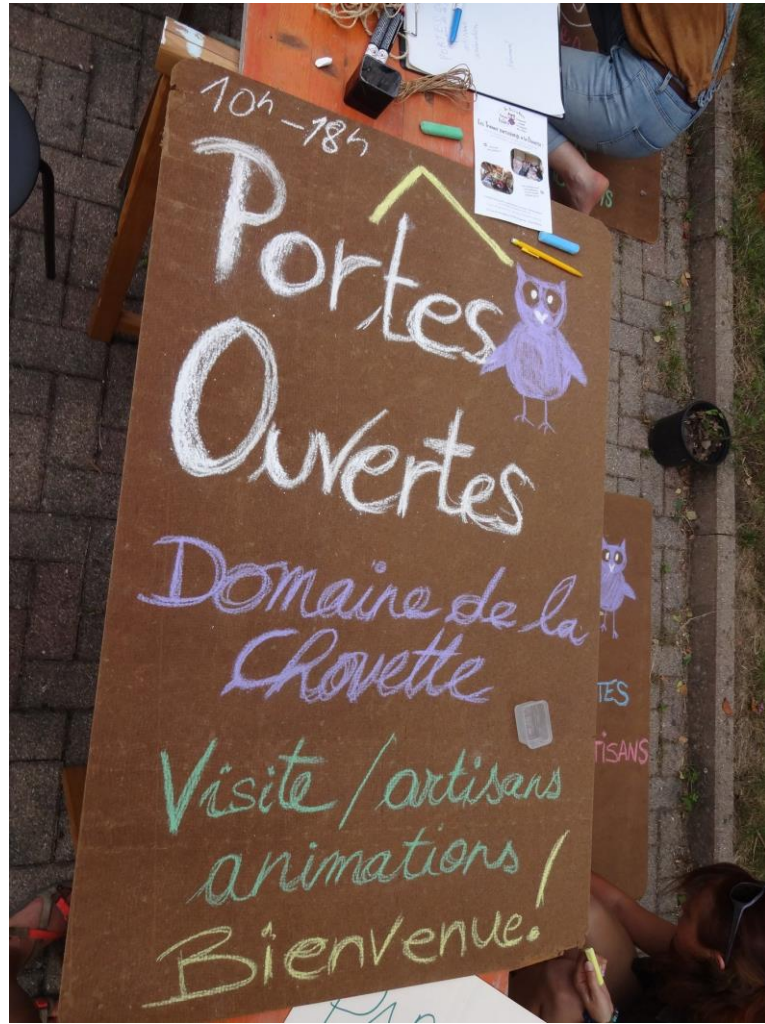 10h-18h
Portes
Ouvertes
Domaine de la
Chovette
Visite / artisans
animations
Bienvenue!
TES
TISANS